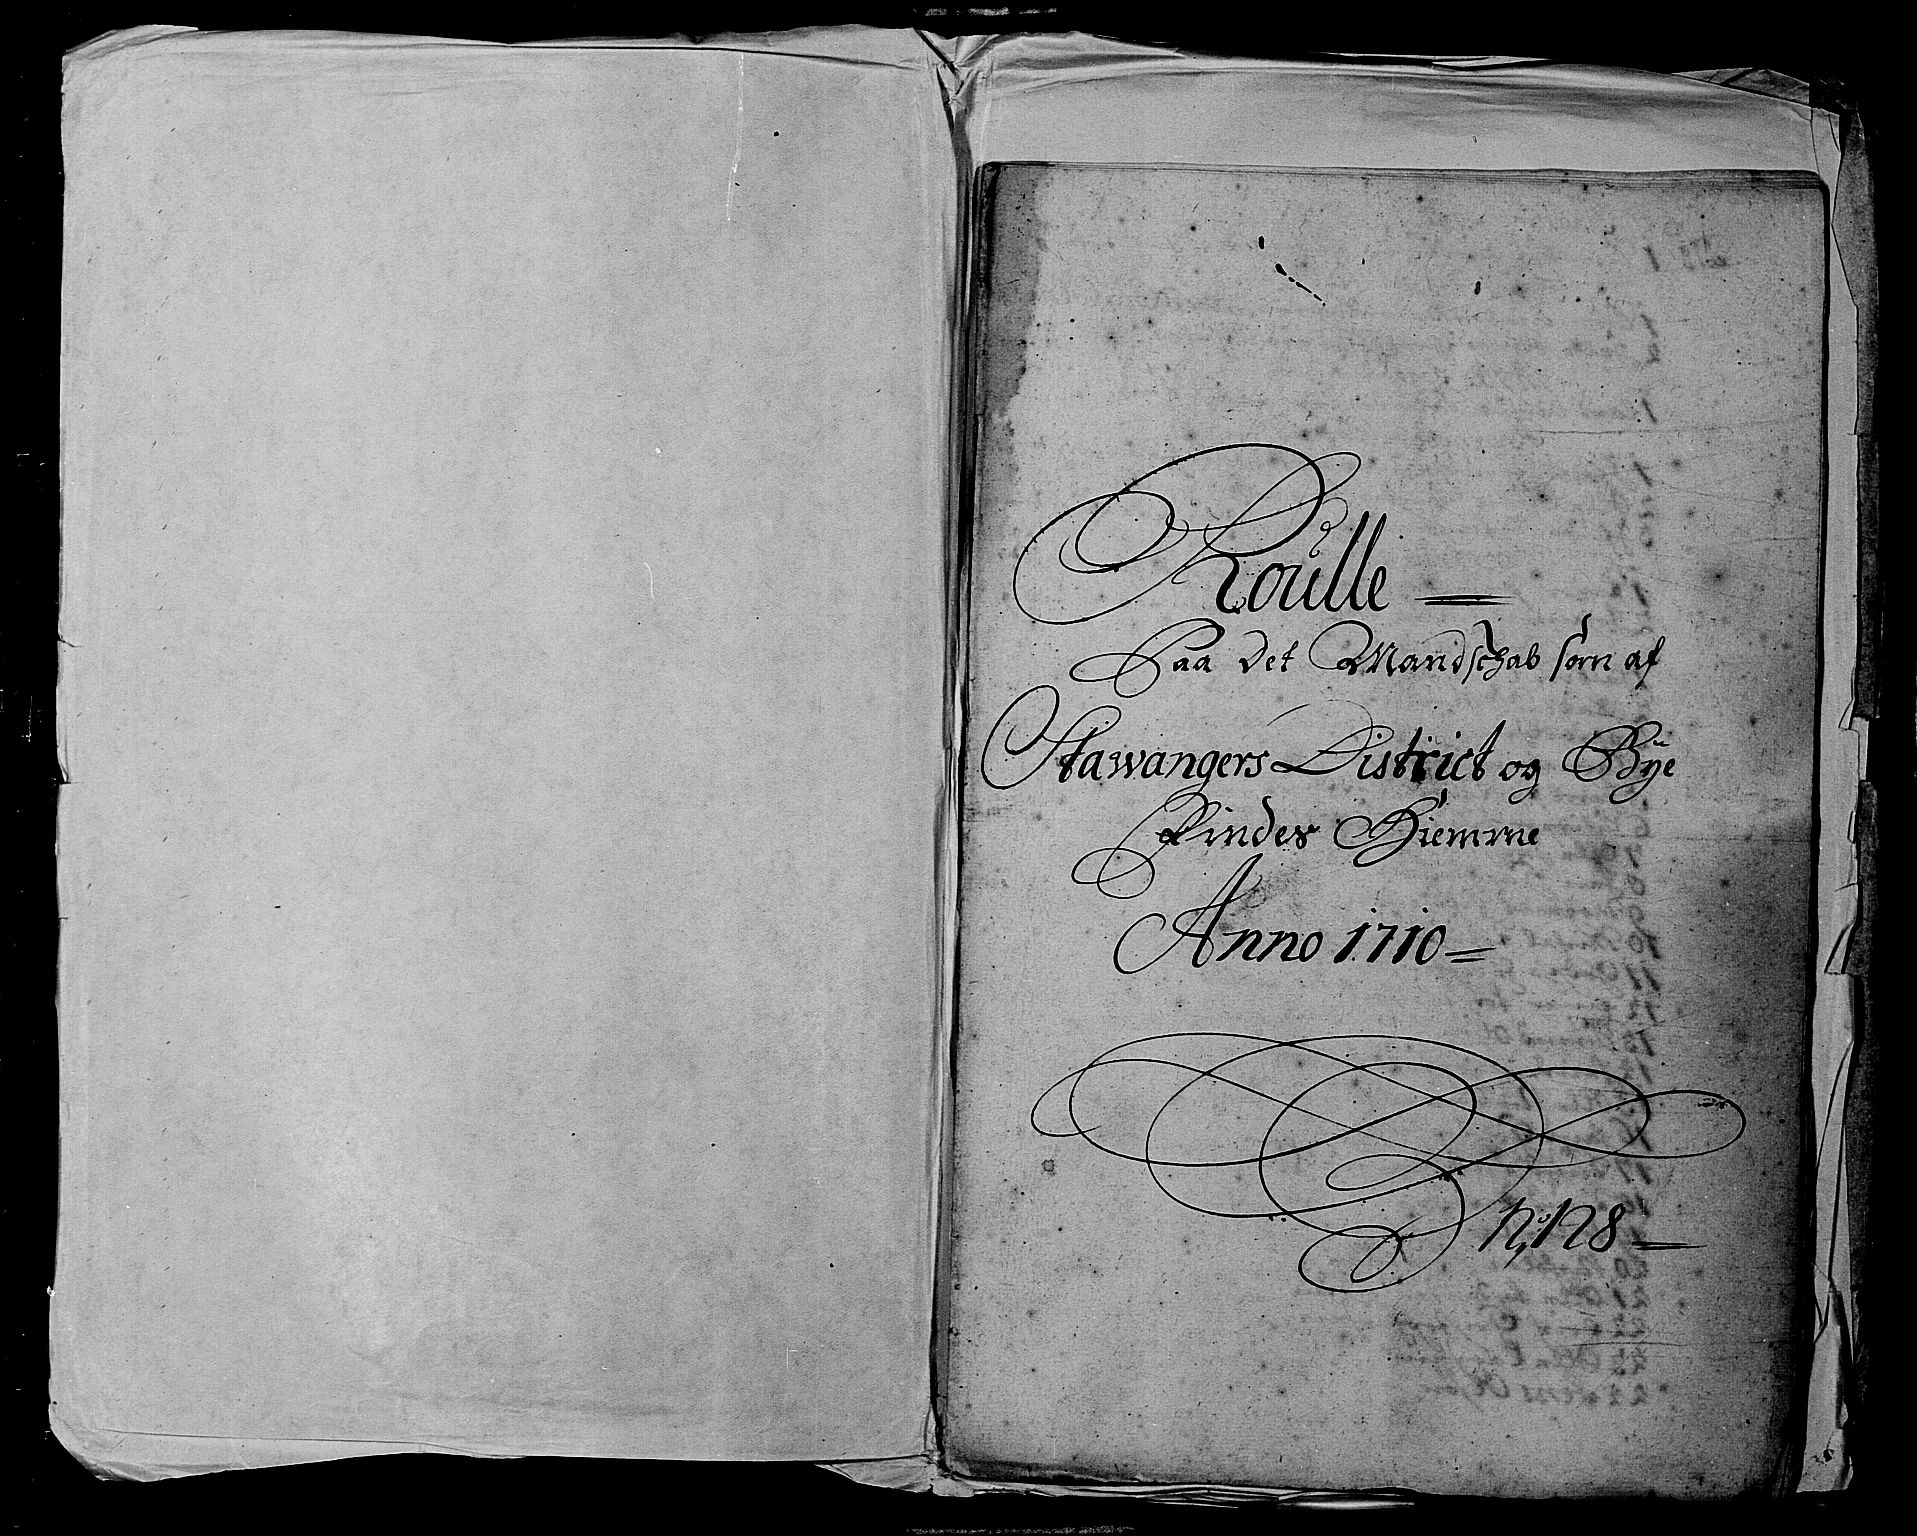 Roulle
Paa det Mandschab som af
Stawangers District og Bye
findes Hiemme
Anno 1710
No 128